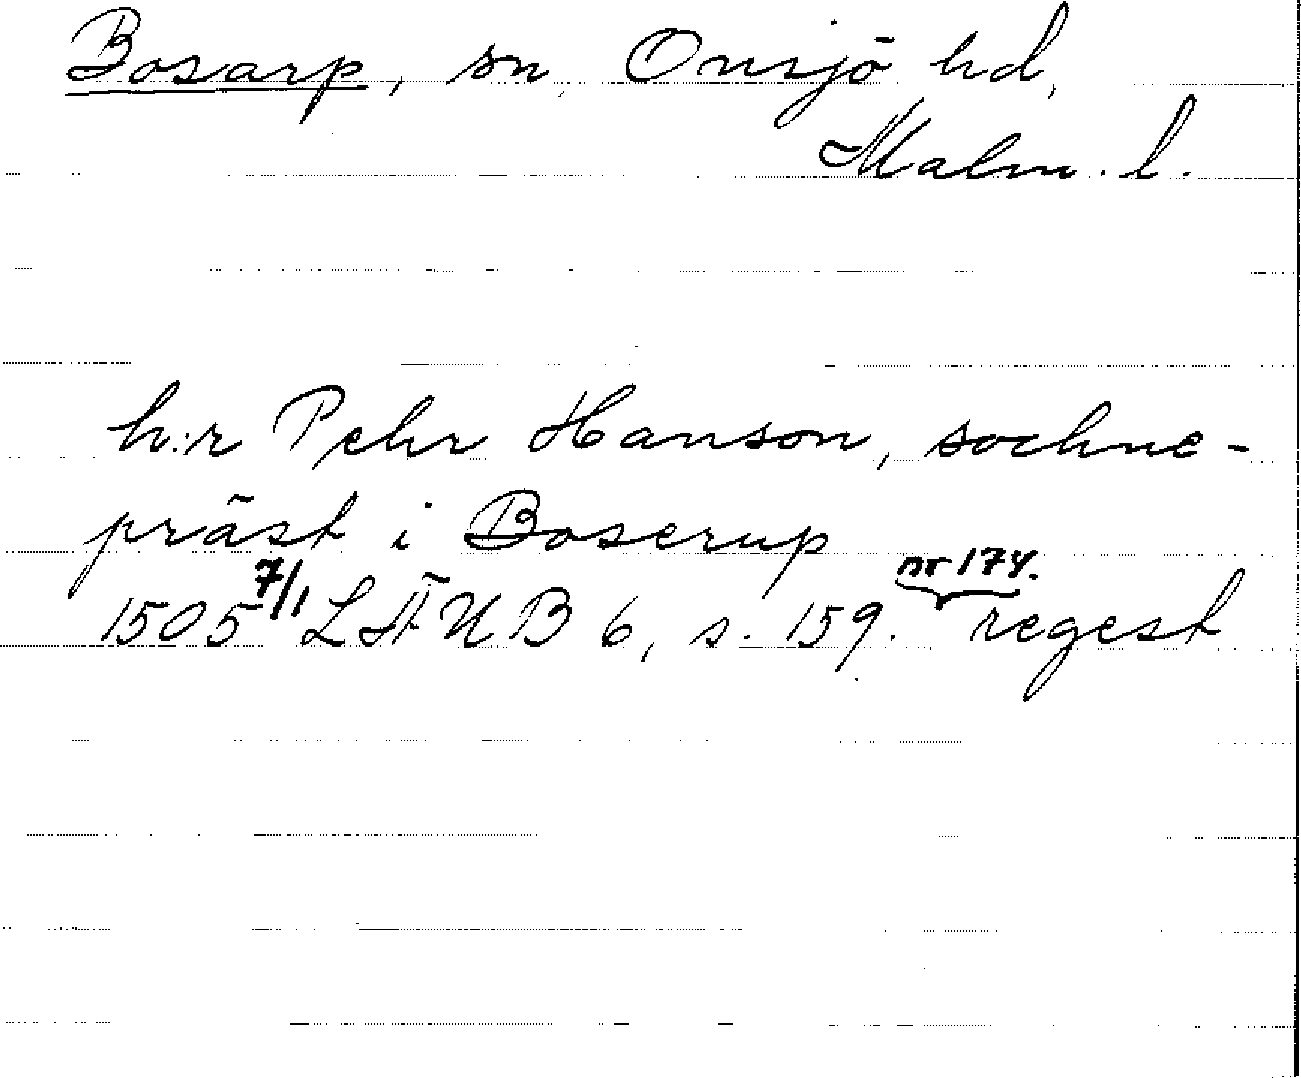 Bosarp, sn, Onsjö hd,
Malm. l.
h:r Pehr Hanson, sochne-
präst i Boserup
1505 7/1 LÄUB 6, s. 159. nr 174. regest